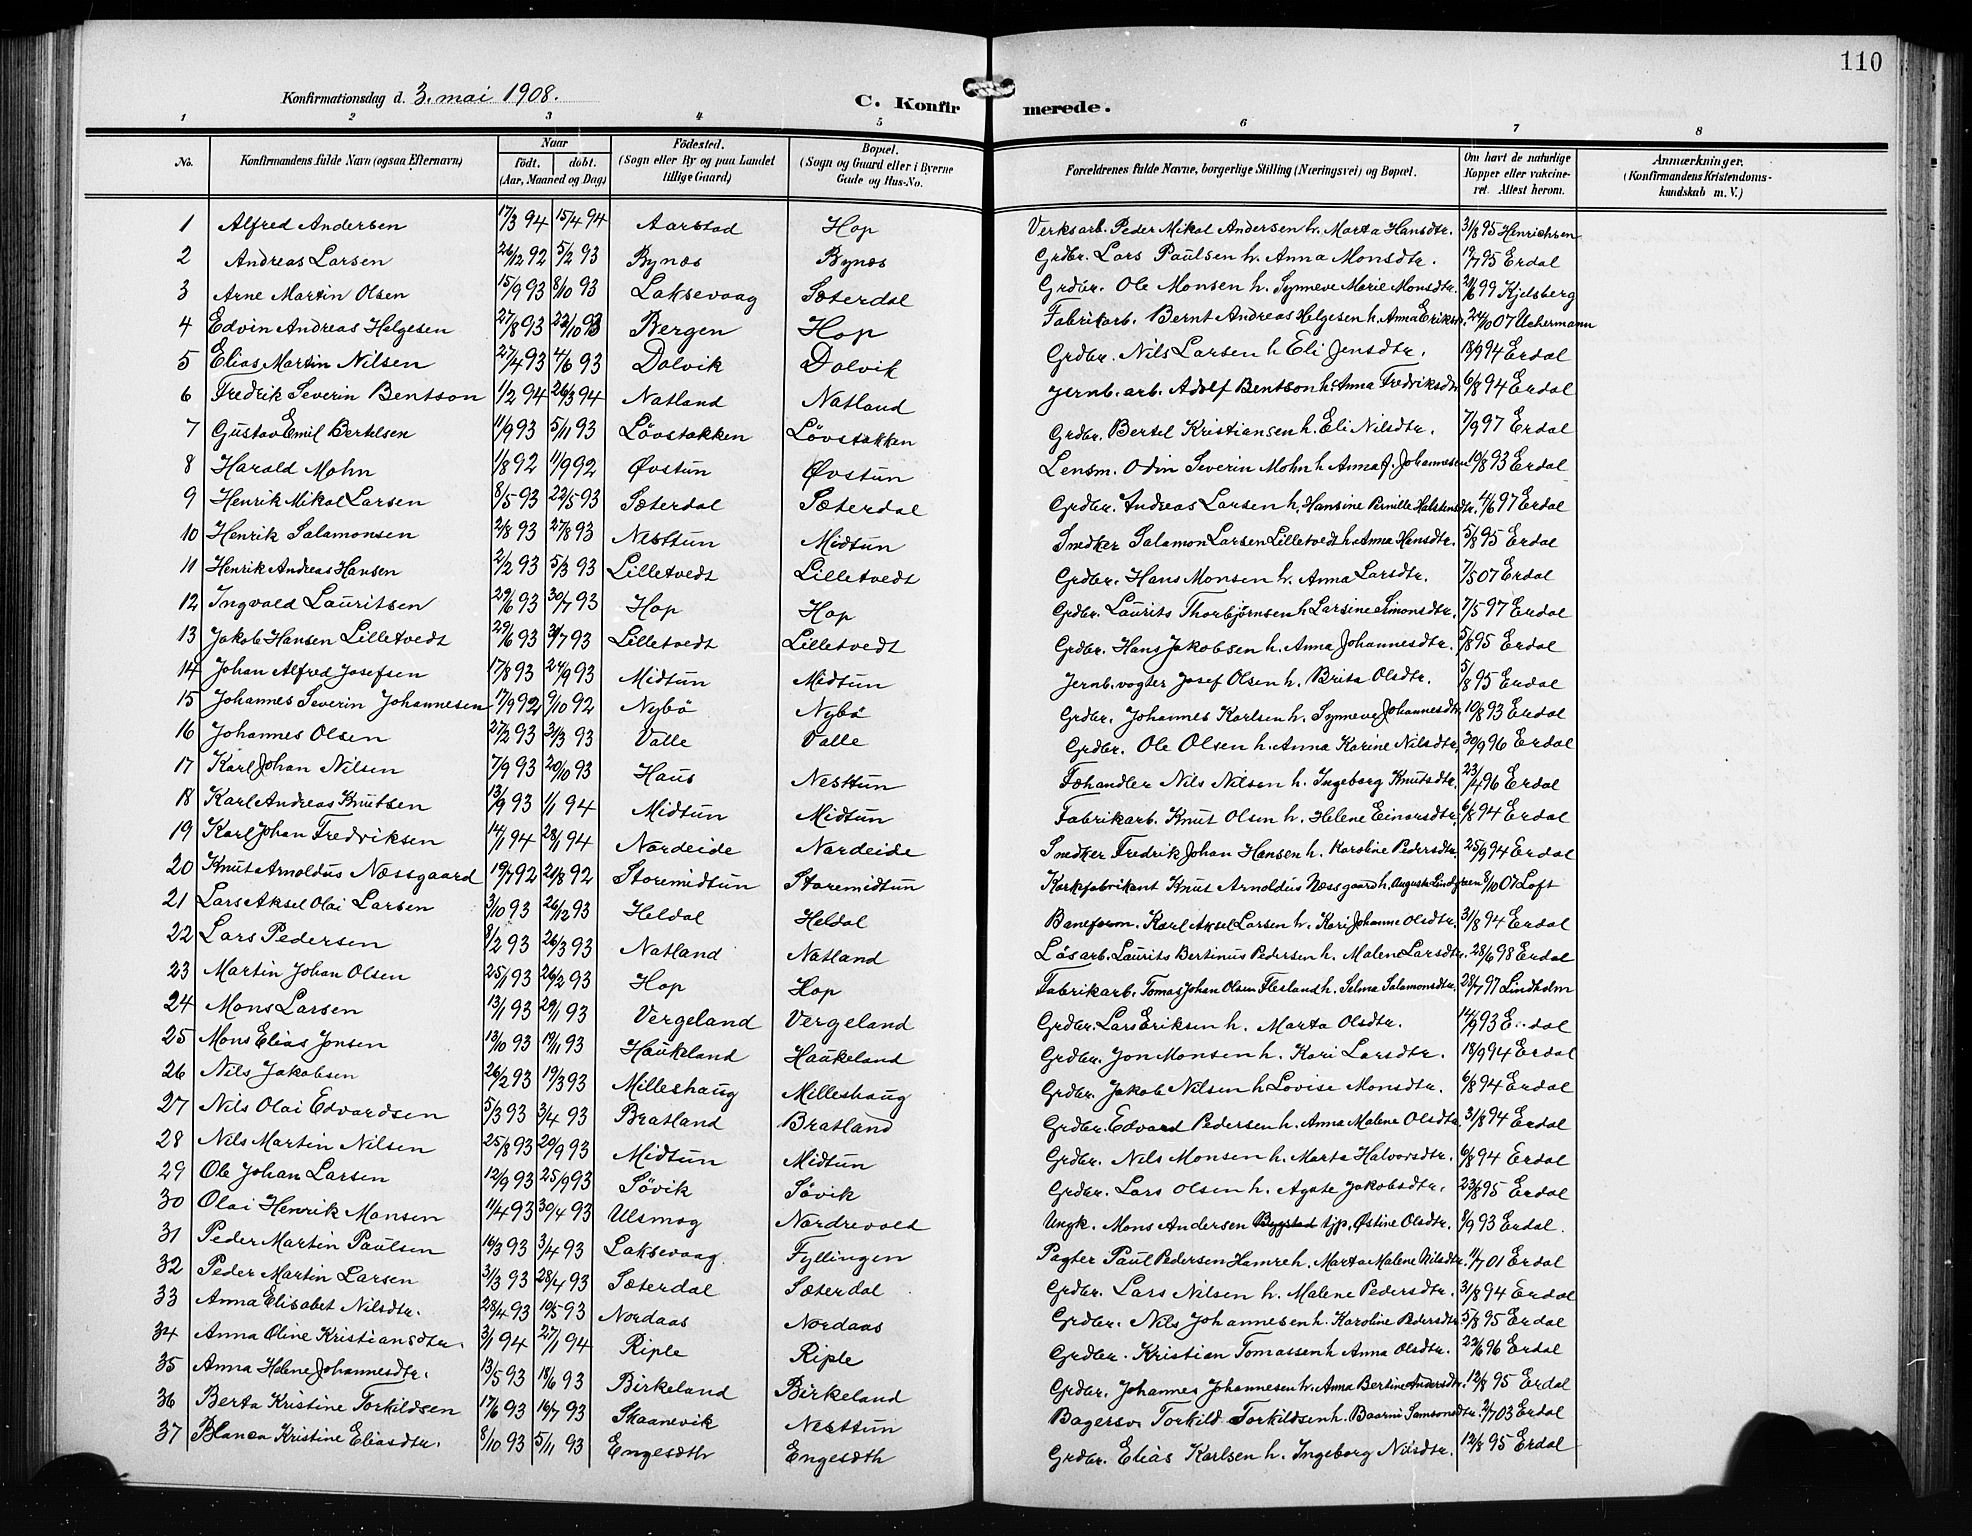 110
Konfirmationsdag d. 3. mai 1908.
C. Konfirmerede.
1 2 3 4 5 6 7 8
No. | Konfirmandens fulde Navn (ogsaa Efternavn) | Naar födt. döbt. (Aar, Maaned og Dag) | Födested. (Sogn eller By og paa Landet tillige Gaard) | Bopæl. (Sogn og Gaard eller i Byerne Gade og Hus-No. | Forældrenes fulde Navne, borgerlige Stilling (Næringsvei) og Bopæl. | Om havt de naturlige Kopper eller vakcineret. Attest herom. | Anmærkninger. (Konfirmandens Kristendomskundskab m. V.)
1 Alfred Andersen 17/3 94 15/4 94 Aarstad Hop Verksarb. Peder Mikal Andersen h. Marta Hansdtr. 31/8 95 Henrichsen
2 Andreas Larsen 26/12 92 5/2 93 Bynæs Bynæs Grdbr. Lars Paulsen h. Anna Monsdtr. 19/7 95 Erdal
3 Arne Martin Olsen 15/9 93 8/10 93 Laksevaag Sæterdal Grdbr. Ole Monsen h. Synneve Marie Monsdtr. 21/6 99 Kjelsberg
4 Edvin Andreas Helgesen 27/8 93 22/10 93 Bergen Hop Fabrikarb. Bernt Andreas Helgesen h. Anna Eriksd. 24/10 07 Uchermann
5 Elias Martin Nilsen 27/4 93 4/6 93 Dolvik Dolvik Grdbr. Nils Larsen h Eli Jensdtr. 18/9 94 Erdal
6 Fredrik Severin Bentson 1/2 94 26/3 94 Natland Natland Jernb. arb. Adolf Bentson h. Anna Fredriksdtr 6/8 94 Erdal
7 Gustav Emil Bertelsen 11/9 93 5/11 93 Lövstakken Lövstakken Grdbr. Bertel Kristiansen h. Eli Nilsdtr. 7/9 97 Erdal
8 Harald Mohn 1/8 92 11/9 92 Øvstun Øvstun Lensm. Odin Severin Mohn h Anna J. Johannesen 10/8 93 Erdal
9 Henrik Mikal Larsen 8/5 93 22/5 93 Sæterdal Sæterdal Grdbr. Andreas Larsen h. Hansine Pernille Halstensdtr. 4/6 97 Erdal
10 Henrik Salamonsen 2/8 93 27/8 93 Nesttun Midtun Snedker Salamon Larsen Lilletvedt h. Anna Hansdtr. 5/8 95 Erdal
11 Henrik Andreas Hansen 2/2 93 5/3 93 Lilletvedt Lilletvedt Grdbr. Hans Monsen h. Anna Larsdtr. 7/5 07 Erdal
12 Ingvald Lauritsen 29/6 93 30/7 93 Hop Hop Grdbr. Laurits Thorbjørnsen h Larsine Simonsdtr. 7/5 97 Erdal
13 Jakob Hansen Lilletvedt 29/6 93 31/7 93 Lilletvedt Lilletvedt Grdbr. Hans Jakobsen h. Anna Johannesdtr. 5/8 95 Erdal
14 Johan Alfred Josefsen 17/8 93 24/9 93 Midtun Midtun Jernb. vogter Josef Olsen h. Brita Olsdtr. 5/8 95 Erdal
15 Johannes Severin Johannesen 17/9 92 9/10 92 Nybö Nybö Grdbr. Johannes Karlsen h. Synneve Johannesdtr. 10/8 93 Erdal
16 Johannes Olsen 27/2 93 31/3 93 Valle Valle Grdbr. Ole Olsen h. Anna Karine Nilsdtr. 30/9 96 Erdal
17 Karl Johan Nilsen 7/9 93 20/10 93 Haus Nesttun Fehandler Nils Nilsen h. Ingeborg Knutsdtr. 23/4 96 Erdal
18 Karl Andreas Knutsen 13/9 93 1/1 94 Midtun Midtun Fabrikarb. Knut Olsen h. Helene Einarsdtr. 6/8 94 Erdal
19 Karl Johan Fredriksen 14/1 94 28/1 94 Nordeide Nordeide Snedker Fredrik Johan Hansen h. Karoline Pedersdtr. 25/9 94 Erdal
20 Knut Arnoldus Næssgaard 19/7 92 21/8 92 Storemidtun Storemidtun Korkfabrikant Knut Arnoldus Næssgaard h. Augusta Lindgreen 8/10 07 Loft
21 Lars Aksel Olai Larsen 3/10 93 26/12 93 Heldal Heldal Baneform. Karl Aksel Larsen h. Kari Johanne Olsdtr. 31/8 94 Erdal
22 Lars Pedersen 8/2 93 26/3 93 Natland Natland Lösarb. Laurits Bertinus Pedersen h. Malene Larsdtr. 28/6 98 Erdal
23 Martin Johan Olsen 25/1 93 26/2 93 Hop Hop Fabrikarb. Tomas Johan Olsen Flesland h. Selma Salamonsdtr. 23/7 97 Lindholm
24 Mons Larsen 13/1 93 29/1 93 Vergeland Vergeland Grdbr. Lars Eriksen h. Marta Olsdtr. 14/9 93 Erdal
25 Mons Elias Jonsen 13/10 93 19/11 93 Haukeland Haukeland Grdbr. Jon Monsen h. Kari Larsdtr. 18/9 94 Erdal
26 Nils Jakobsen 26/2 93 19/3 93 Milleshaug Milleshaug Grdbr. Jakob Nilsen h Lovise Monsdtr. 6/8 94 Erdal
27 Nils Olai Edvardsen 5/3 93 3/4 93 Bratland Bratland Grdbr. Edvard Pedersen h. Anna Malene Olsdtr. 31/8 94 Erdal
28 Nils Martin Nilsen 25/8 93 20/9 93 Midtun Midtun Grdbr. Nils Monsen h. Marta Halvorsdtr. 6/8 94 Erdal
29 Ole Johan Larsen 12/9 93 25/9 93 Sövik Sövik Grdbr. Lars Olsen h. Agate Jakobsdtr. 23/8 95 Erdal
30 Olai Henrik Monsen 11/4 93 30/4 93 Ulsmog Nordrevold Ungk. Mons Andersen Bygstad tjp. Østine Olsdtr. 8/9 93 Erdal.
31 Peder Martin Paulsen 16/3 93 3/4 93 Laksevaag Fyllingen Pagter Paul Pedersen Hamre h. Marta Malene Nilsdtr. 11/7 01 Erdal
32 Peder Martin Larsen 31/3 93 28/4 93 Sæterdal Sæterdal Grdbr. Lars Nilsen h. Malene Pedersdtr. 31/8 94 Erdal
33 Anna Elisabet Nilsdtr. 28/4 93 19/5 93 Nordaas Nordaas Grdbr. Nils Johannesen h. Karoline Pedersdtr. 5/8 95 Erdal
34 Anna Oline Kristiansdtr. 3/1 94 27/1 94 Riple Riple Grdbr. Kristian Tomassen h Anna Olsdtr. 22/6 96 Erdal
35 Anna Helene Johannesdtr. 13/5 93 18/6 93 Birkeland Birkeland Grdbr. Johannes Johannesen h. Anna Bertine Andersdtr. 12/8 95 Erdal
36 Berta Kristine Torkildsen 17/6 93 16/7 93 Skaanevik Nesttun Bagersv. Torkild Torkildsen h. Baarni Samsonsdtr. 2/7 03 Erdal
37 Blanca Kristine Eliasdtr. 8/10 93 5/11 93 Engesæth Engesæth Grdbr. Elias Karlsen h. Ingeborg Nilsdtr. 12/8 95 Erdal